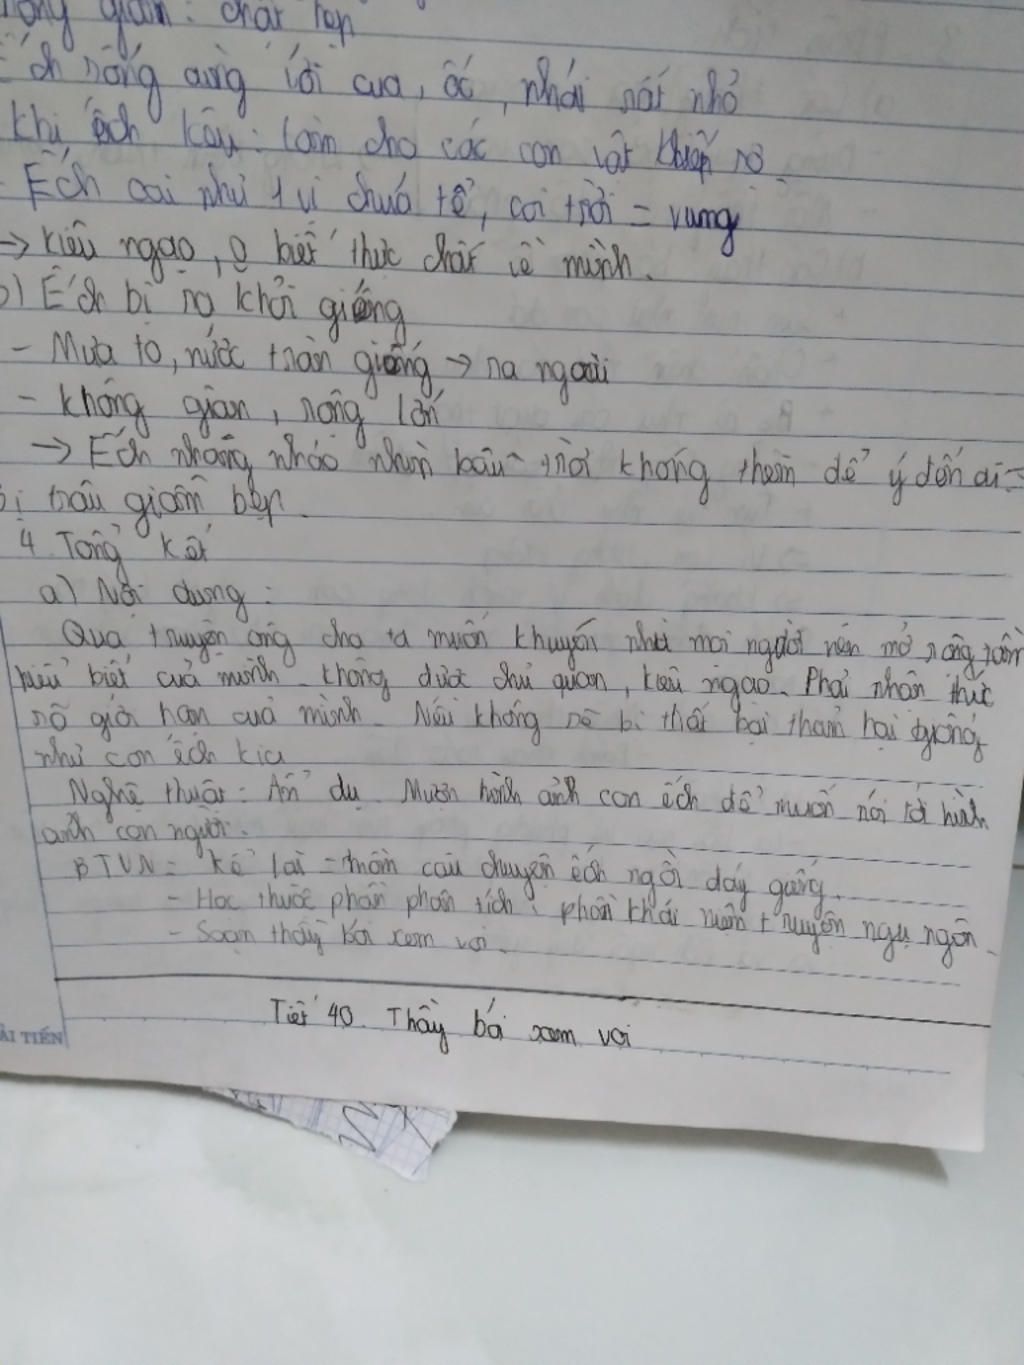 gian: chật hẹp
Ếch sống cùng với cua, ốc, nhái rất nhỏ
Khi ếch kêu: làm cho các con vật khiếp sợ
- Ếch oai như 1 vị chúa tể, coi trời = vung
→ kiêu ngạo, o biết thực chất về mình.
b) Ếch bị ra khỏi giếng
- Mưa to, nước tràn giếng → ra ngoài
- Không gian, rộng lớn
→ Ếch nhâng nháo nhìn bầu trời không thèm để ý đến ai →
Bị trâu giẫm bẹp.
4 Tổng kết
a) Nội dung:
Qua truyện ông cha ta muốn khuyên nhủ mọi người nên mở rộng tầm
hiểu biết của mình. Không được chủ quan, kiêu ngạo. Phải nhận thức
rõ giới hạn của mình. Nếu không sẽ bị thất bại thảm hại giống
như con ếch kia
Nghệ thuật: Ẩn dụ. Mượn hình ảnh con ếch để muốn nói tới hình
ảnh con người.
BTVN = Kể lại câu chuyện ếch ngồi đáy giếng.
- Học thuộc phần phân tích, phần khái niệm truyện ngụ ngôn.
- Soạn thầy bói xem voi.
Tiết 40. Thầy bói xem voi
ẢI TIẾN